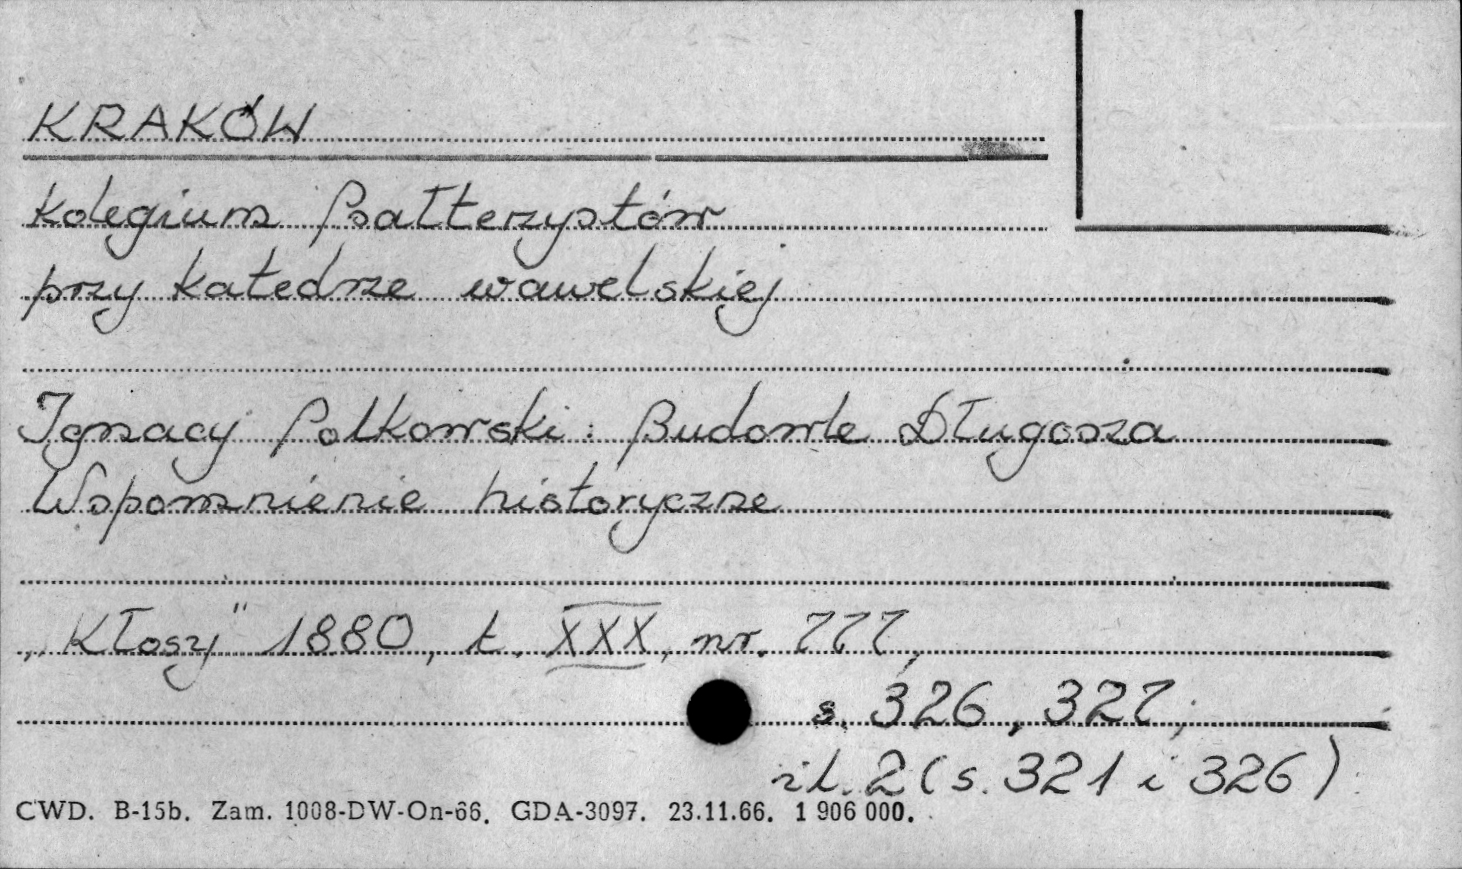 KRAKÓW
Kolegium Psałterzystów
przy katedrze wawelskiej
Ignacy Polkowski: Budowle Długosza
Wspomnienie historyczne
„Kłosy" 1880, t. XXX, nr. 777,
s. 326, 327;
il. 2 (s. 321 i 326)
CWD. B-15b. Zam. 1008-DW-On-66. GDA-3097. 23.11.66. 1 906 000.